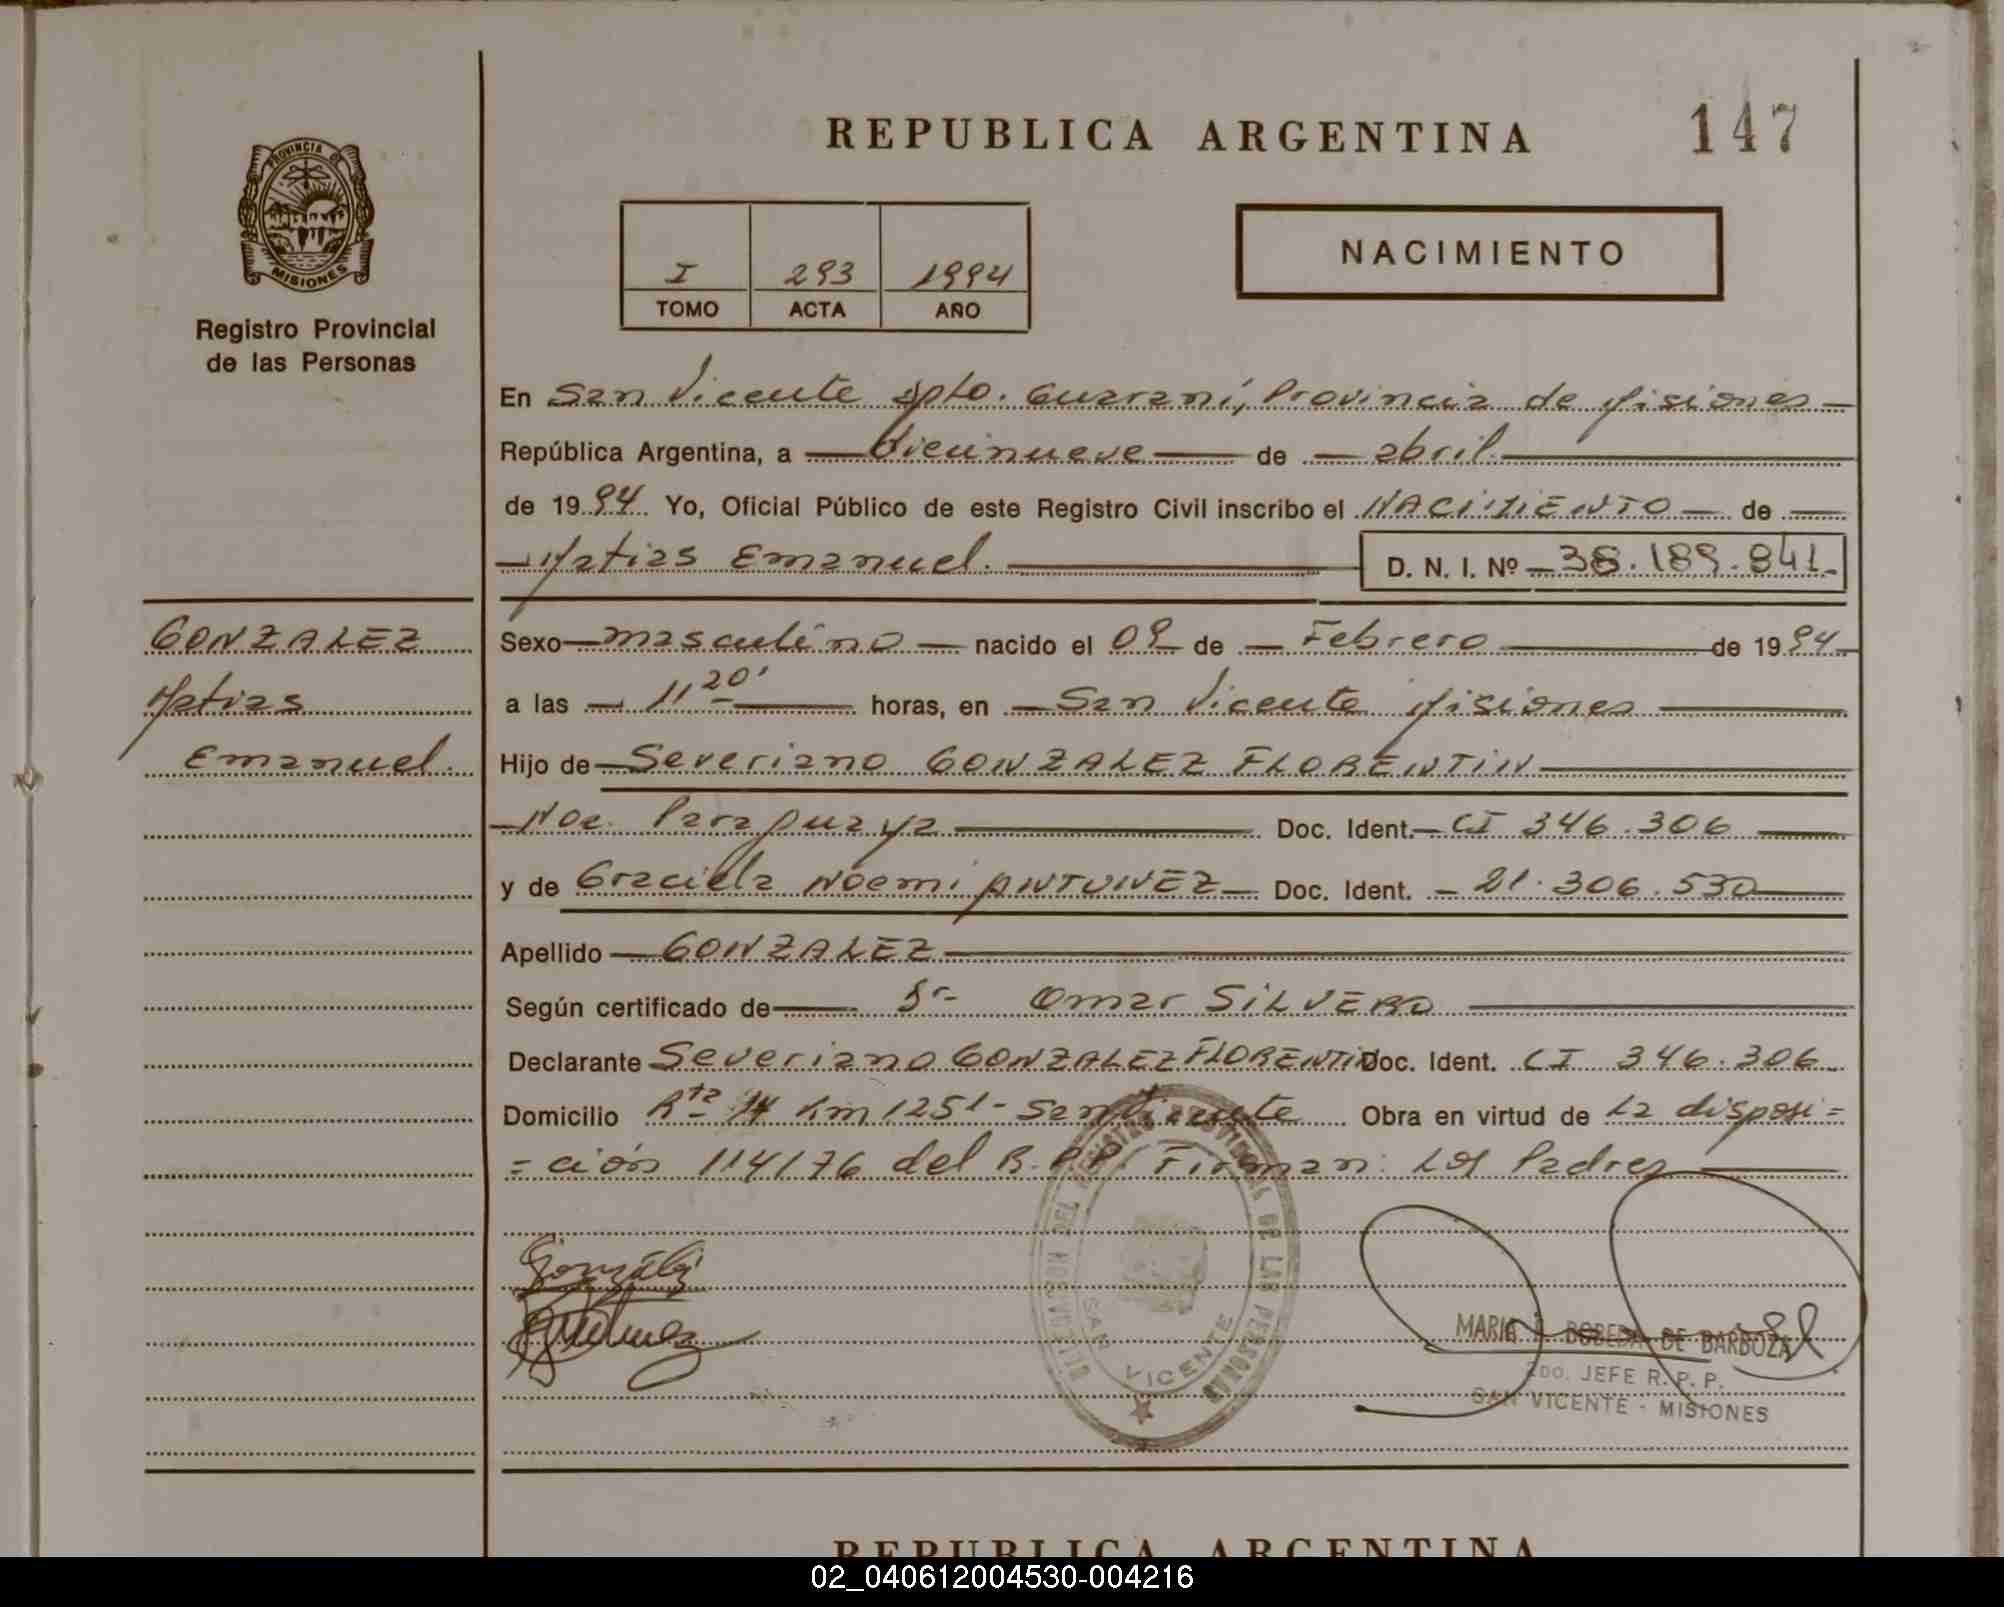 REPUBLICA ARGENTINA
147
PROVINCIA DE
MISIONES
Registro Provincial
de las Personas
I 293 1994
TOMO ACTA AÑO
NACIMIENTO
En San Vicente dpto. Guaraní, Provincia de Misiones
República Argentina, a diecinueve de abril
de 1994 Yo, Oficial Público de este Registro Civil inscribo el NACIMIENTO de
Matias Emanuel. D. N. I. Nº 38.189.841
GONZALEZ
Matias
Emanuel.
Sexo masculino nacido el 09 de Febrero de 1994
a las 11 20' horas, en San Vicente Misiones
Hijo de Severiano GONZALEZ FLORENTIN
Nac. Paraguaya Doc. Ident. CI 346.306
y de Graciela Noemi ANTUNEZ Doc. Ident. 21.306.530
Apellido GONZALEZ
Según certificado de Dr. Omar SILVERO
Declarante Severiano GONZALEZ FLORENTIN Doc. Ident. CI 346.306
Domicilio Rta 14 Km 1251 - San Vicente Obra en virtud de la disposi=
=ción 114/76 del R.P.P. Firman: Los Padres
González
Antunez
DEL REGISTRO PROVINCIAL DE LAS PERSONAS
SAN VICENTE
MARIA BOBEDA DE BARBOZA
2DO. JEFE R. P. P.
SAN VICENTE - MISIONES
REPUBLICA ARGENTINA
02_040612004530-004216